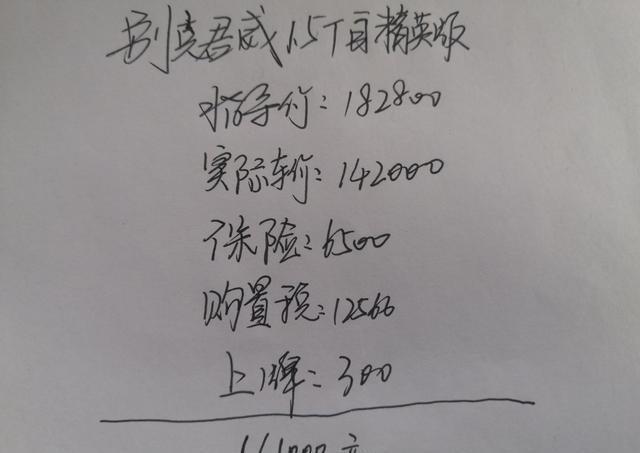 别克君威15T自精英版
指导价：182800
实际车价：142000
保险：6500
购置税：12566
上牌：300